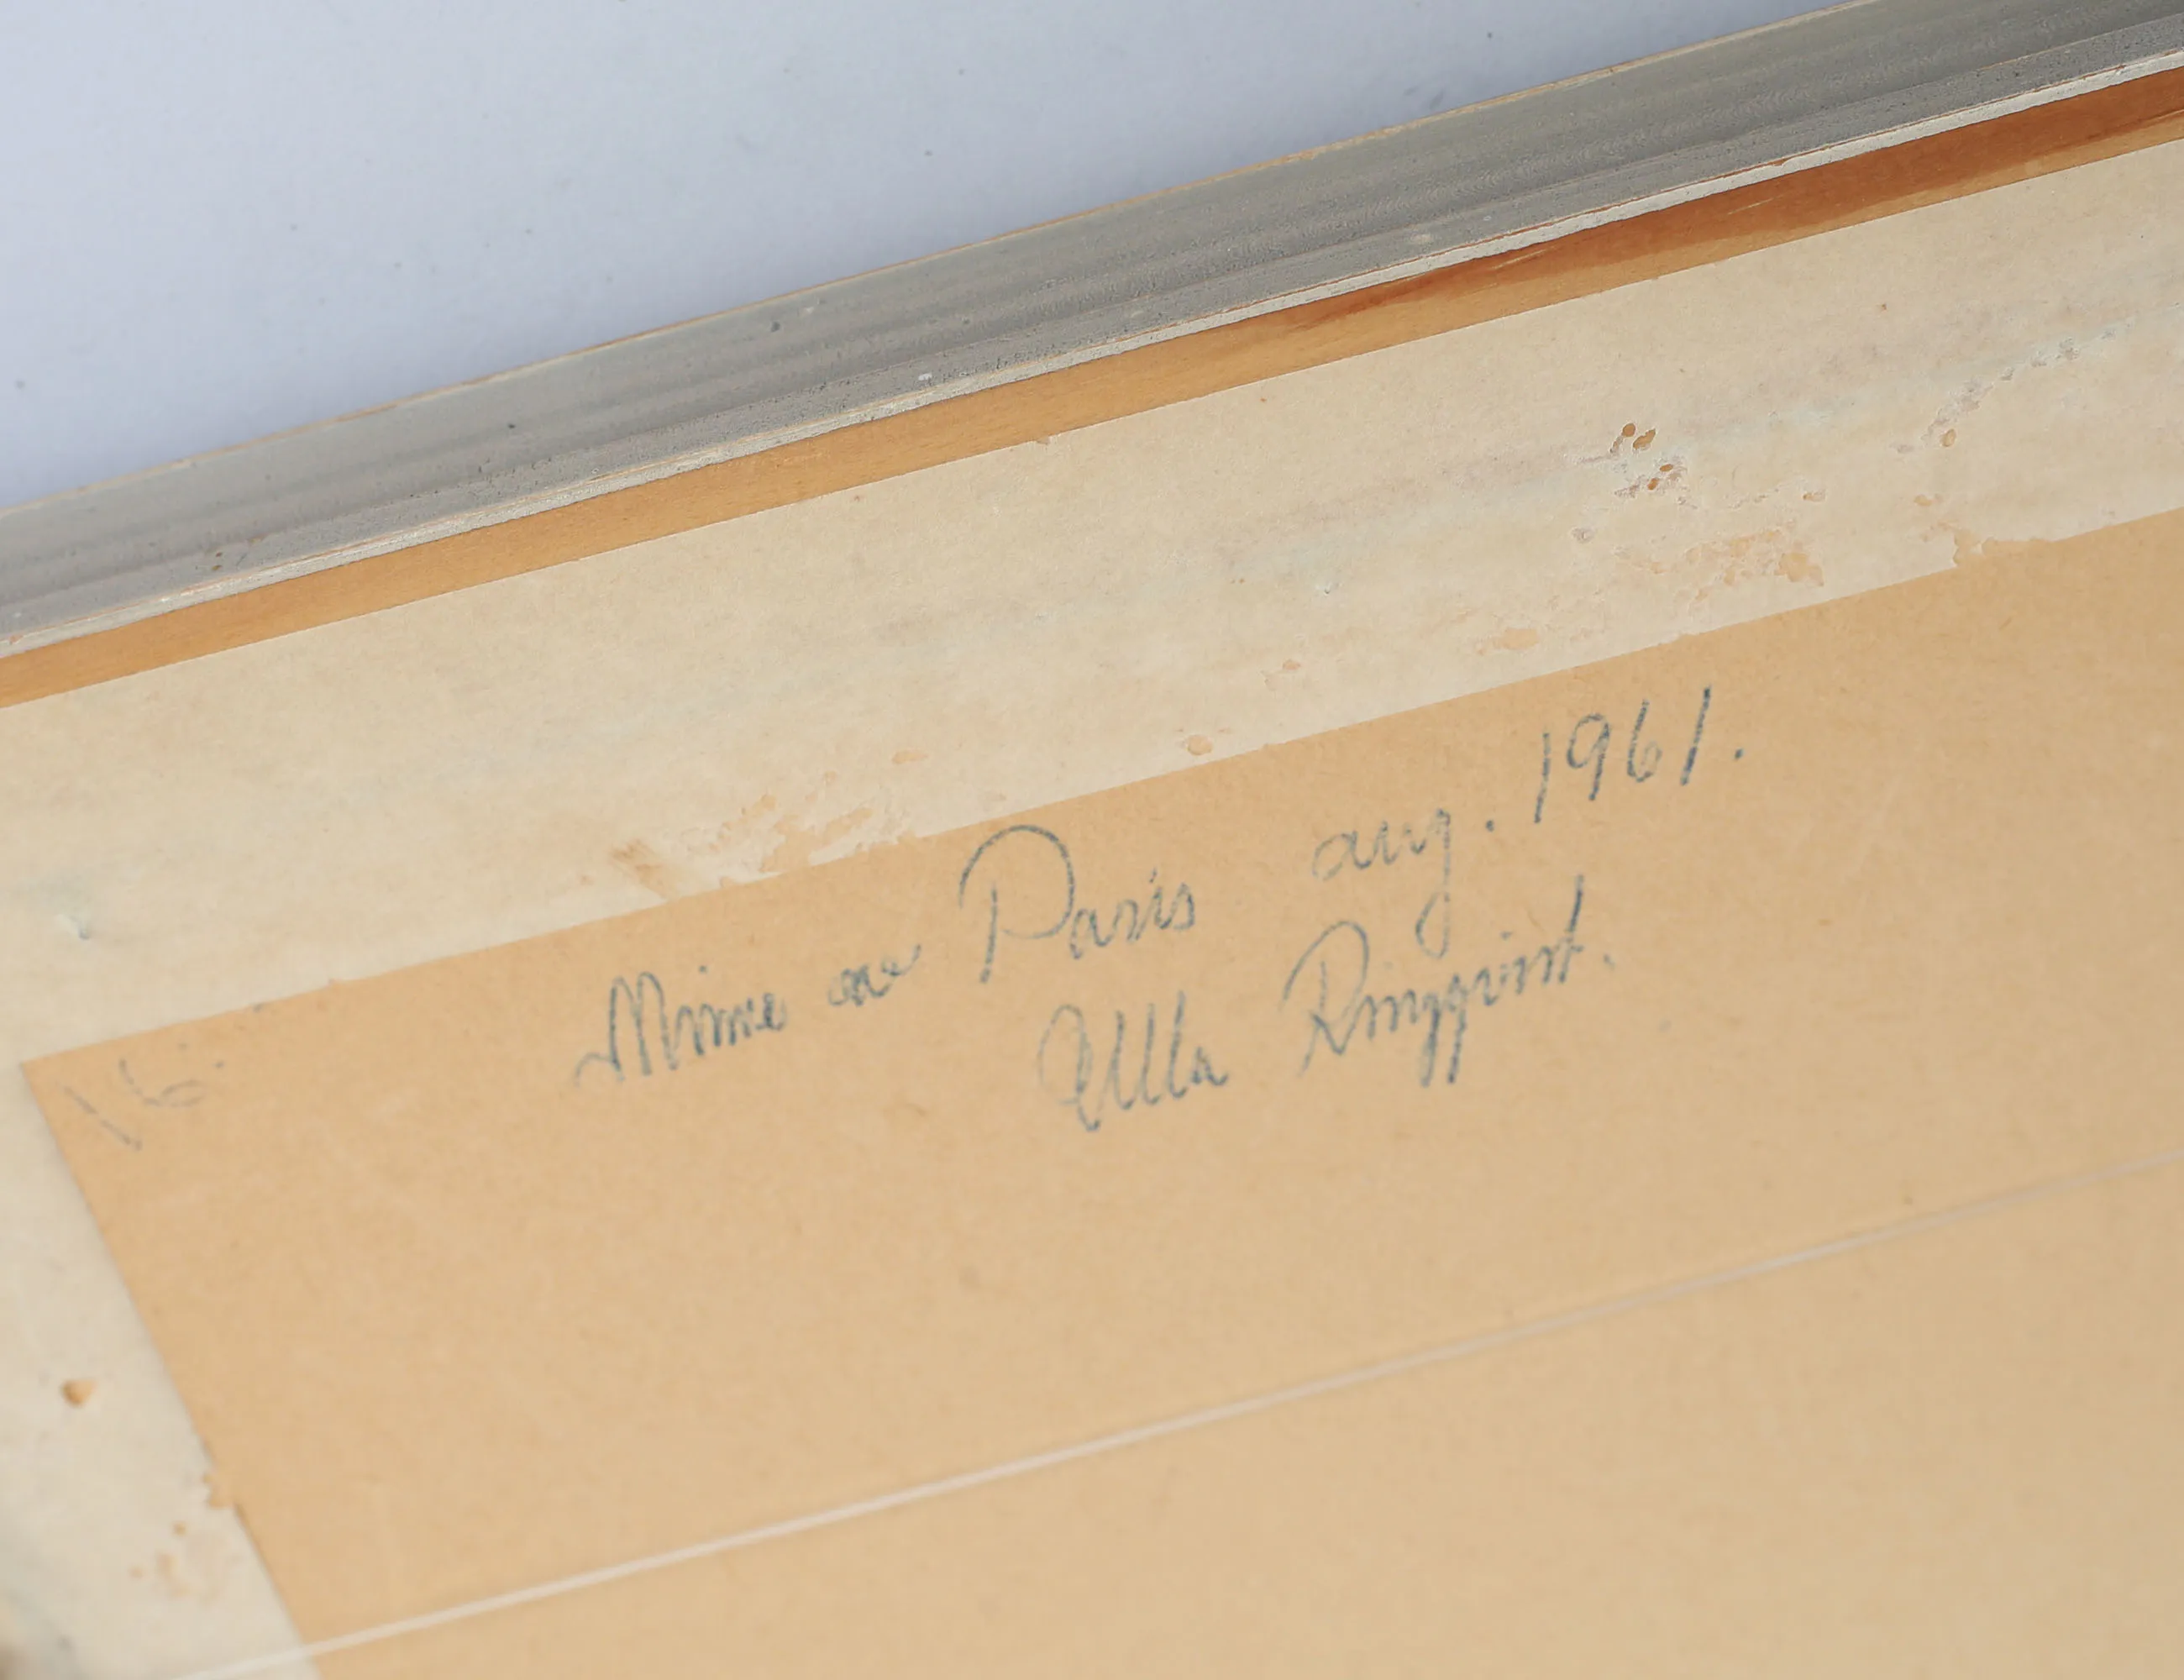 Minne av Paris aug. 1961.
Ulla Ringqvist.
16.